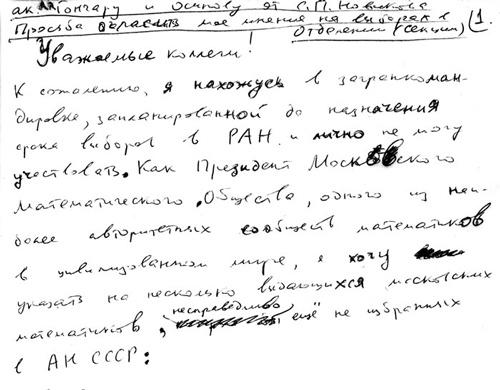 ак. Гончару и Осипову от С.П. Новикова
Просьба огласить мое мнение на выборах в
Отделении (секции) (1.
Уважаемые коллеги!
К сожалению, я нахожусь в загранкоман-
дировке, запланированной до назначения
срока выборов в РАН и лично не могу
участвовать. Как Президент Московского
Математического Общества, одного из наи-
более авторитетных сообществ математиков
в цивилизованном мире, я хочу
указать на несколько выдающихся московских
математиков, несправедливо ещё не избранных
в АН СССР: